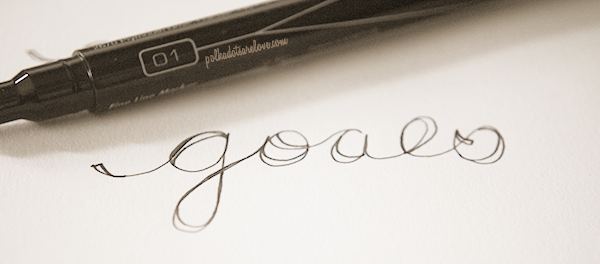 01
polkadotsarelove.com
Fine Line Marker
goals